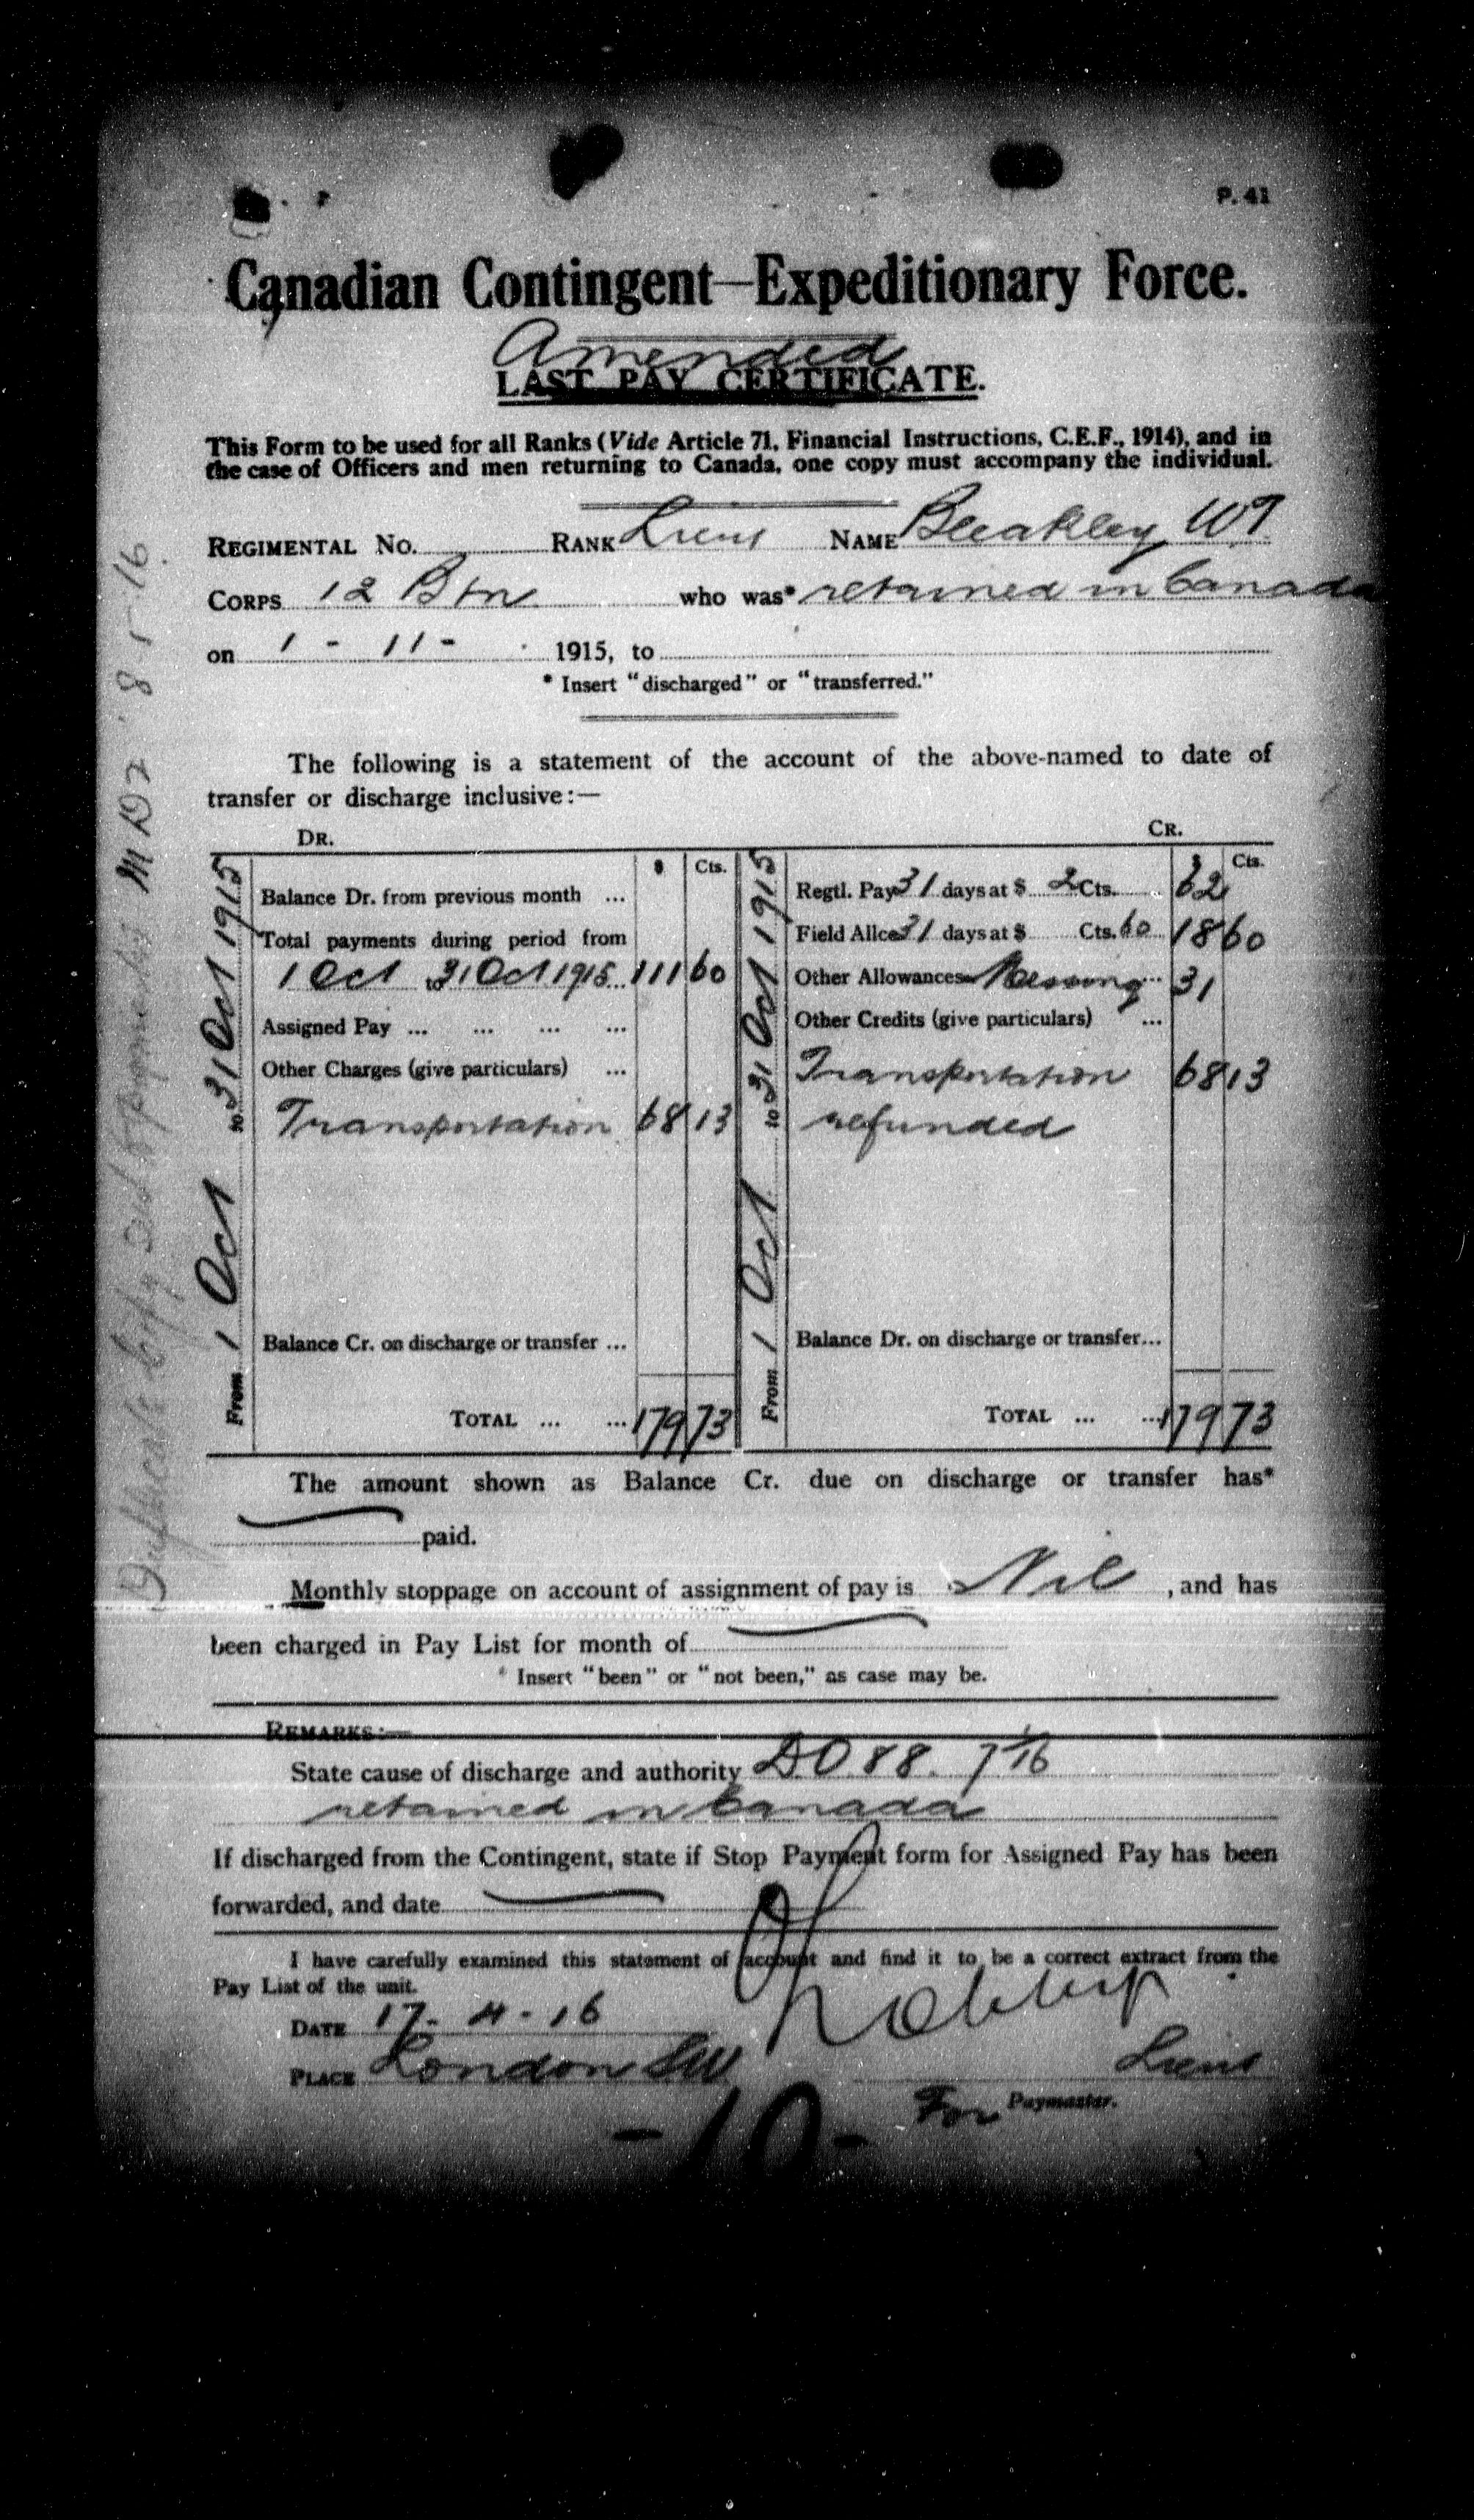 P. 41
Canadian Contingent—Expeditionary Force.
Amended
LAST PAY CERTIFICATE.
This Form to be used for all Ranks (Vide Article 71, Financial Instructions, C.E.F., 1914), and in
the case of Officers and men returning to Canada, one copy must accompany the individual.
REGIMENTAL NO. RANK Lieut NAME Bleakley W.T.
CORPS 12 Btn who was* retained in Canada
on 1 - 11 - 1915, to
* Insert "discharged" or "transferred."
The following is a statement of the account of the above-named to date of
transfer or discharge inclusive:—
DR. CR.
$ Cts. $ Cts.
From 1 Oct to 31 Oct 1915
Balance Dr. from previous month ...
Total payments during period from
1 Oct to 31 Oct 1915 111 60
Assigned Pay ... ... ... ...
Other Charges (give particulars) ...
Transportation 68 13
Balance Cr. on discharge or transfer ...
TOTAL ... ... 179 73
From 1 Oct to 31 Oct 1915
Regtl. Pay 31 days at $ 2 Cts. 62
Field Allce 31 days at $ Cts. 60 18 60
Other Allowances Messing ... 31
Other Credits (give particulars) ...
Transportation 68 13
refunded
Balance Dr. on discharge or transfer...
TOTAL ... ... 179 73
The amount shown as Balance Cr. due on discharge or transfer has*
paid.
Monthly stoppage on account of assignment of pay is Nil , and has
been charged in Pay List for month of
* Insert "been" or "not been," as case may be.
REMARKS:—
State cause of discharge and authority D.O 88. 7/1/16
retained in Canada
If discharged from the Contingent, state if Stop Payment form for Assigned Pay has been
forwarded, and date
I have carefully examined this statement of account and find it to be a correct extract from the
Pay List of the unit.
DATE 17 - 4 - 16
PLACE London SW Lieut
For Paymaster.
-10-
Duplicate Copy M D 2 8-1-16